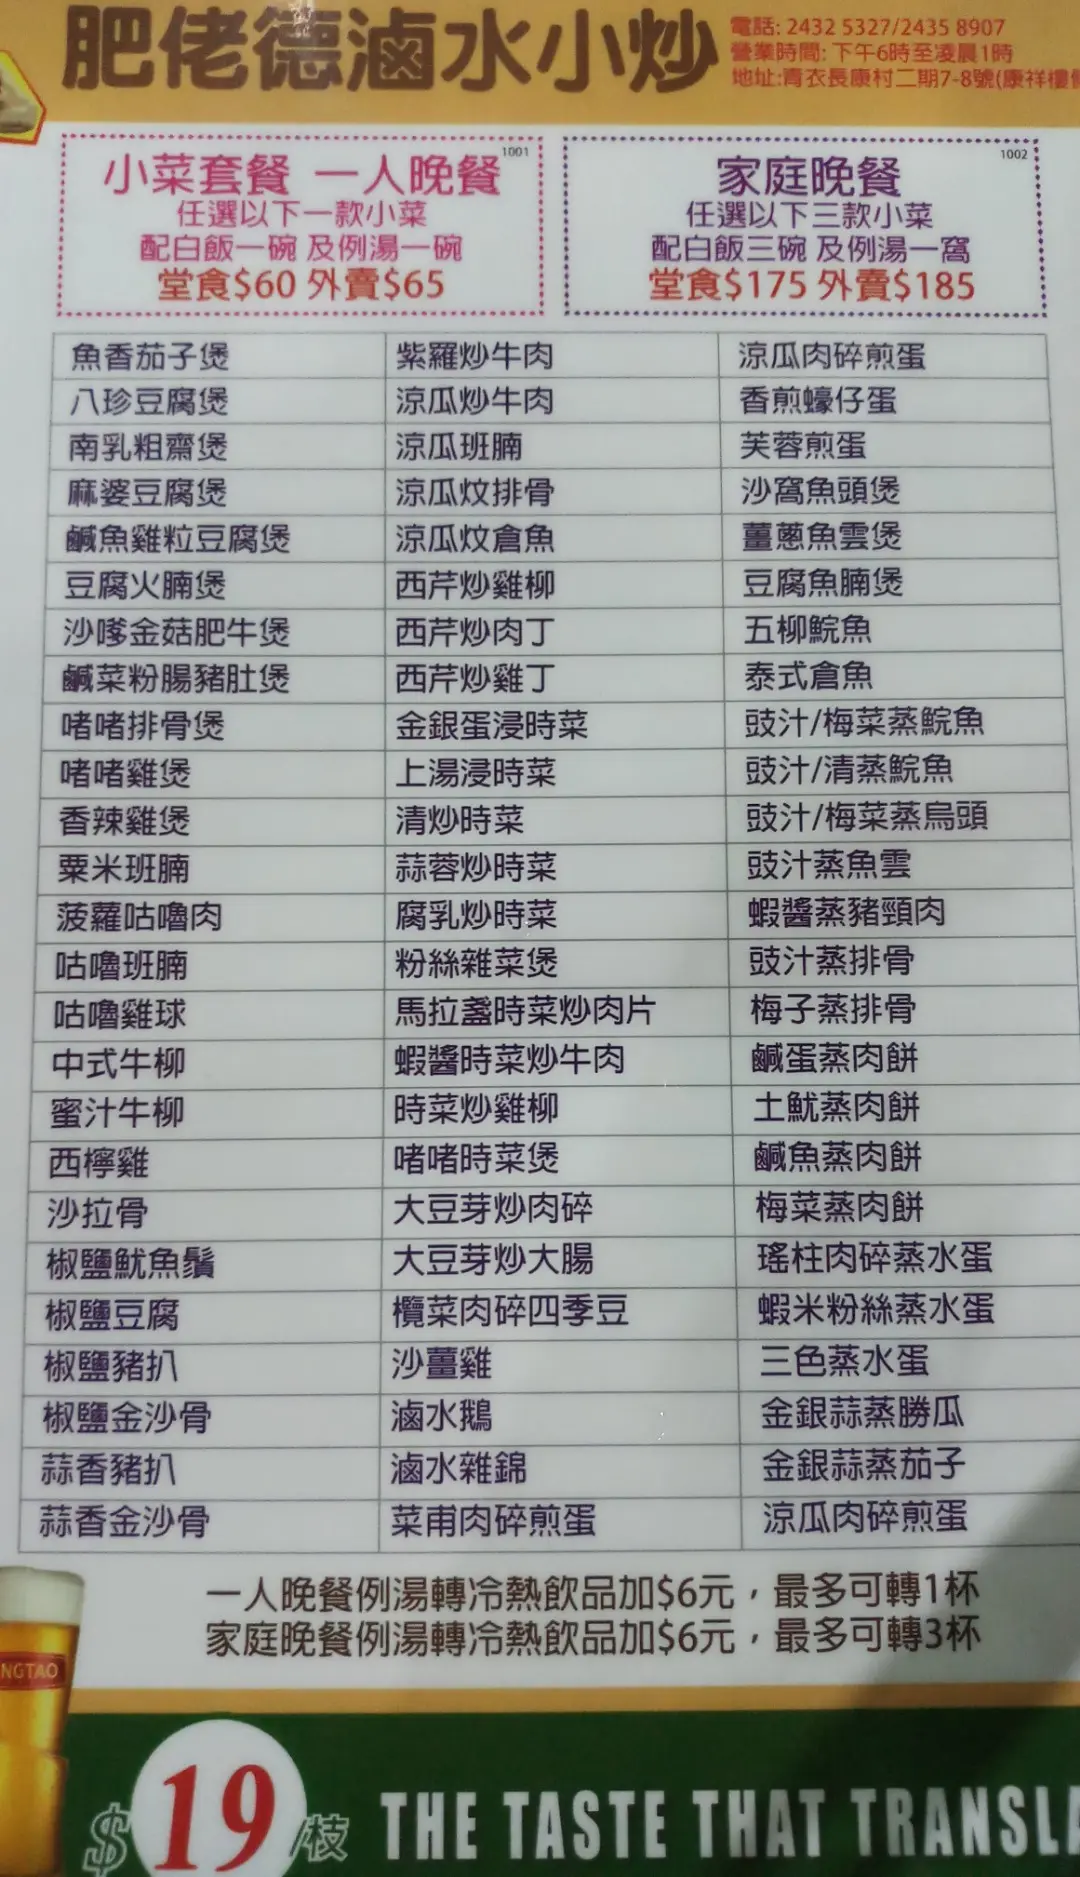 肥佬德滷水小炒
電話: 2432 5327/2435 8907
營業時間: 下午6時至凌晨1時
地址:青衣長康村二期7-8號(康祥樓
1001
小菜套餐 一人晚餐
任選以下一款小菜
配白飯一碗 及例湯一碗
堂食$60 外賣$65
1002
家庭晚餐
任選以下三款小菜
配白飯三碗 及例湯一窩
堂食$175 外賣$185
魚香茄子煲 紫羅炒牛肉 涼瓜肉碎煎蛋
八珍豆腐煲 涼瓜炒牛肉 香煎蠔仔蛋
南乳粗齋煲 涼瓜班腩 芙蓉煎蛋
麻婆豆腐煲 涼瓜炆排骨 沙窩魚頭煲
鹹魚雞粒豆腐煲 涼瓜炆倉魚 薑蔥魚雲煲
豆腐火腩煲 西芹炒雞柳 豆腐魚腩煲
沙嗲金菇肥牛煲 西芹炒肉丁 五柳鯇魚
鹹菜粉腸豬肚煲 西芹炒雞丁 泰式倉魚
啫啫排骨煲 金銀蛋浸時菜 豉汁/梅菜蒸鯇魚
啫啫雞煲 上湯浸時菜 豉汁/清蒸鯇魚
香辣雞煲 清炒時菜 豉汁/梅菜蒸烏頭
粟米班腩 蒜蓉炒時菜 豉汁蒸魚雲
菠蘿咕嚕肉 腐乳炒時菜 蝦醬蒸豬頸肉
咕嚕班腩 粉絲雜菜煲 豉汁蒸排骨
咕嚕雞球 馬拉盞時菜炒肉片 梅子蒸排骨
中式牛柳 蝦醬時菜炒牛肉 鹹蛋蒸肉餅
蜜汁牛柳 時菜炒雞柳 土魷蒸肉餅
西檸雞 啫啫時菜煲 鹹魚蒸肉餅
沙拉骨 大豆芽炒肉碎 梅菜蒸肉餅
椒鹽魷魚鬚 大豆芽炒大腸 瑤柱肉碎蒸水蛋
椒鹽豆腐 欖菜肉碎四季豆 蝦米粉絲蒸水蛋
椒鹽豬扒 沙薑雞 三色蒸水蛋
椒鹽金沙骨 滷水鵝 金銀蒜蒸勝瓜
蒜香豬扒 滷水雜錦 金銀蒜蒸茄子
蒜香金沙骨 菜甫肉碎煎蛋 涼瓜肉碎煎蛋
一人晚餐例湯轉冷熱飲品加$6元，最多可轉1杯
家庭晚餐例湯轉冷熱飲品加$6元，最多可轉3杯
NGTAO
$19/枝
THE TASTE THAT TRANSLA